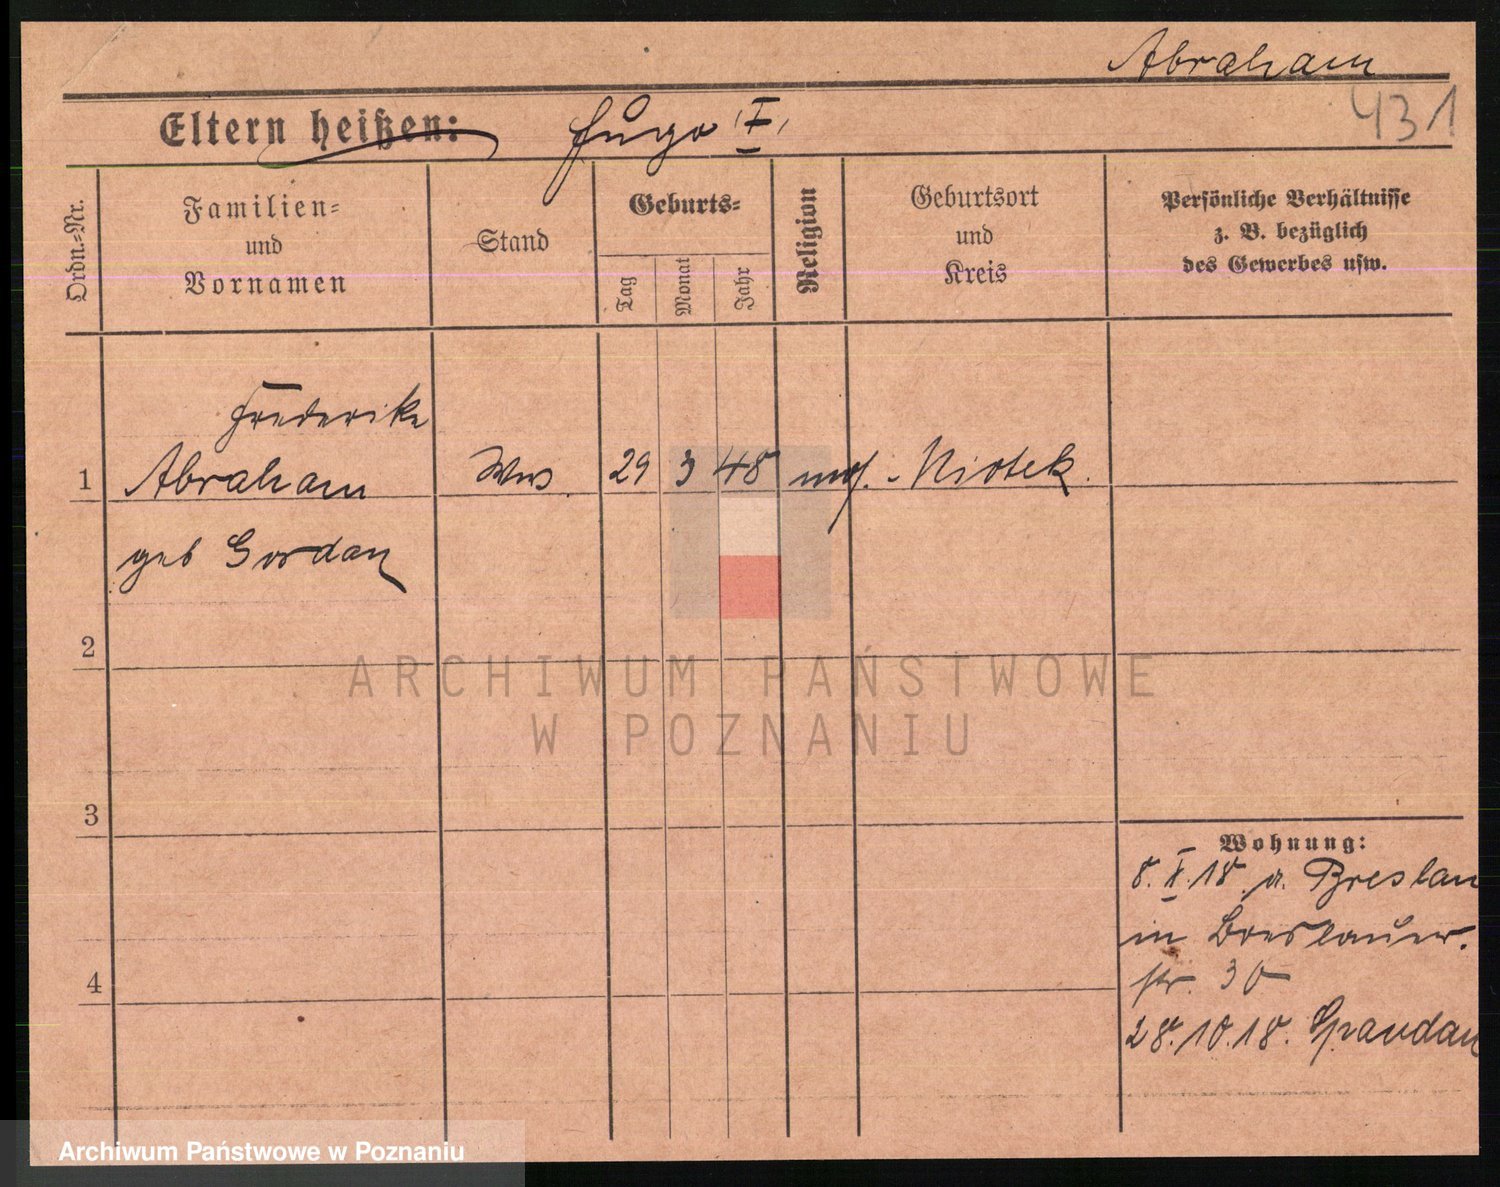 Abraham
431
Eltern heißen: Hugo (I)
Ordn.=Nr.
Familien=
und
Vornamen
Stand
Geburts=
Tag
Monat
Jahr
Religion
Geburtsort
und
Kreis
Persönliche Verhältnisse
z. B. bezüglich
des Gewerbes usw.
Frederike
1 Abraham Wws. 29 3 48 mos.
geb Gordan
2
3
4
Wohnung:
8. X. 18. a. Breslau
in Breslauer-
str. 30
28.10.18. Spandau
ARCHIWUM PAŃSTWOWE
W POZNANIU
Archiwum Państwowe w Poznaniu